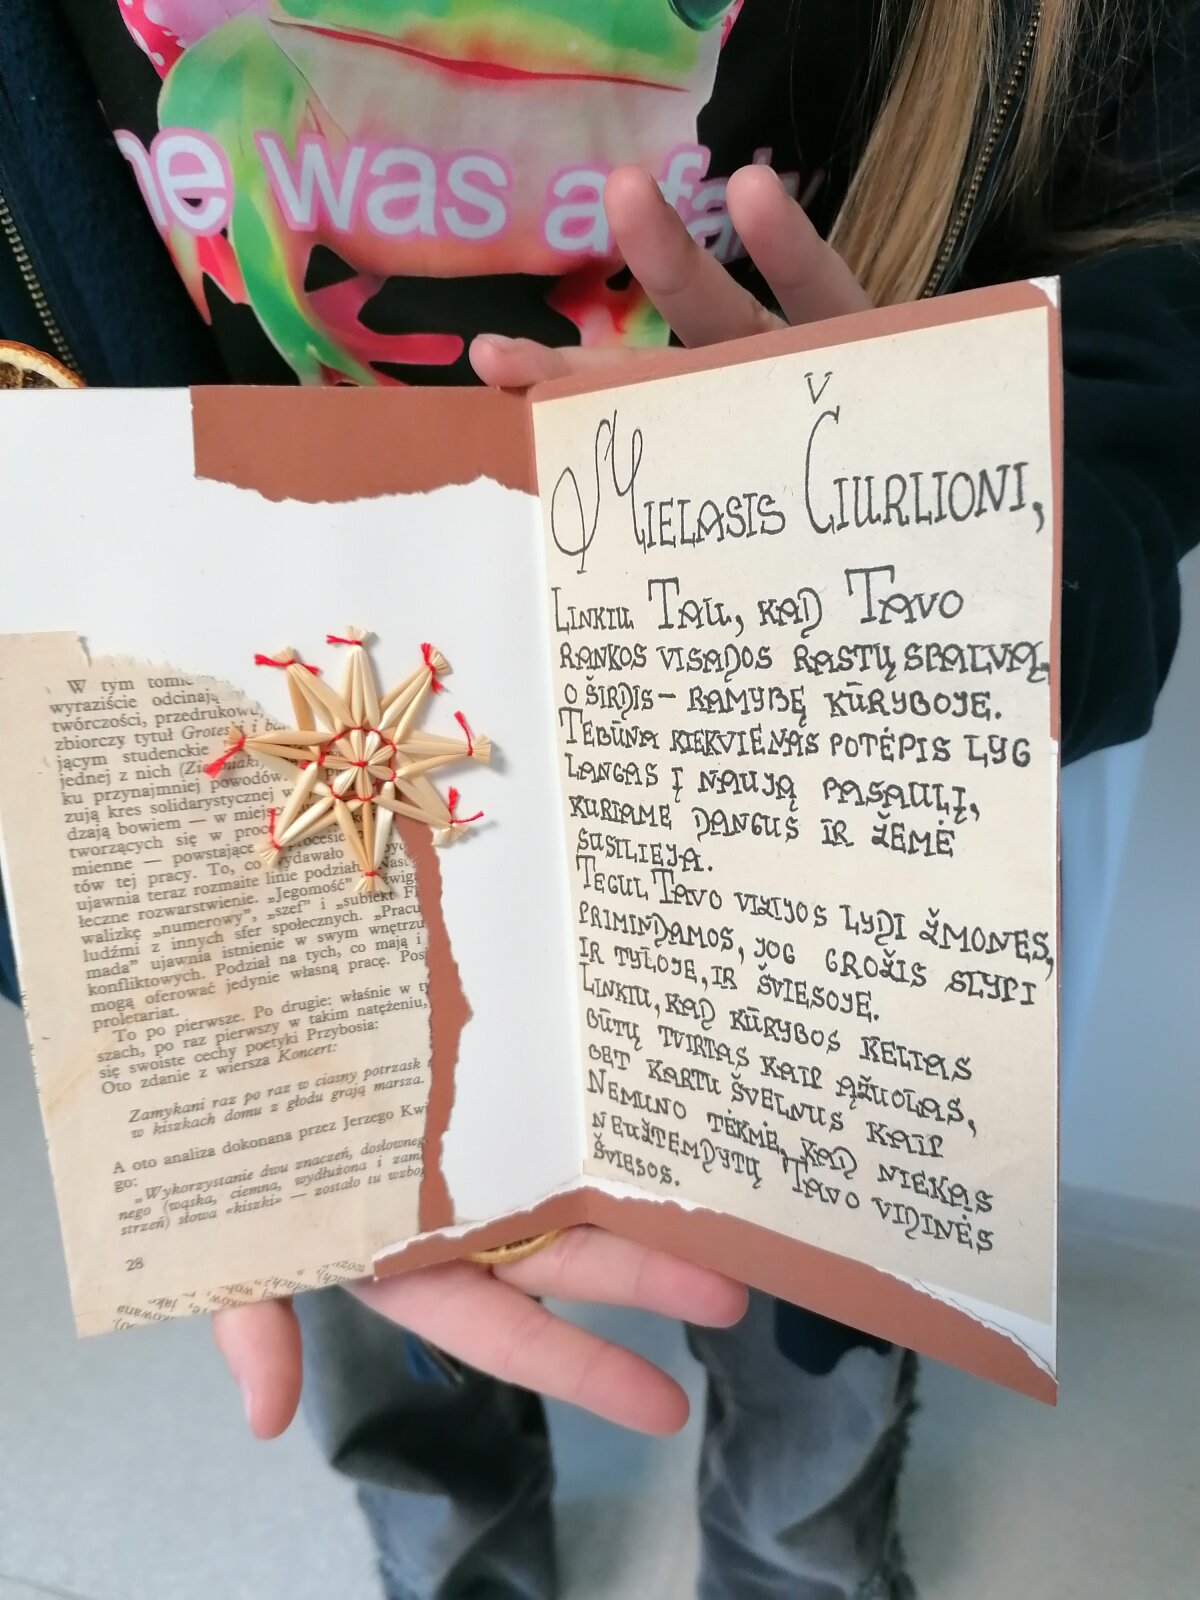 was a fairy
W tym tomie
wyraziście odcinają
twórczości, przedrukowu
zbiorczy tytuł Groteski i ba
jącym studenckie
jednej z nich (Ziemniaki)
ku przynajmniej powodów.
zują kres solidarystycznej w
dzają bowiem — w miejs
tworzących się w proc
mienne — powstające procesie
tów tej pracy. To, co wydawało być
ujawnia teraz rozmaite linie podziału. Nast
łeczne rozwarstwienie. „Jegomość” dźwiga
walizkę „numerowy”, „szef” i „subiekt Fl
ludźmi z innych sfer społecznych. „Pracu
mada” ujawnia istnienie w swym wnętrzu
konfliktowych. Podział na tych, co mają i
mogą oferować jedynie własną pracę. Pos
proletariat.
To po pierwsze. Po drugie: właśnie w ty
szach, po raz pierwszy w takim natężeniu,
się swoiste cechy poetyki Przybosia:
Oto zdanie z wiersza Koncert:
Zamykani raz po raz w ciasny potrzask
w kiszkach domu z głodu grają marsza.
A oto analiza dokonana przez Jerzego Kwi
go:
„Wykorzystanie dwu znaczeń, dosłowneg
nego (wąska, ciemna, wydłużona i zam
strzeń) słowa «kiszki» — zostało tu wzbog
28
Mielasis Čiurlioni,
Linkiu Tau, kad Tavo
rankos visados rastų spalvą,
o širdis – ramybę kūryboje.
Tebūna kiekvienas potėpis lyg
langas į naują pasaulį,
kuriame dangus ir žemė
susilieja.
Tegul Tavo vizijos lydi žmones,
primindamos, jog grožis slypi
ir tyloje, ir šviesoje.
Linkiu, kad kūrybos kelias
būtų tvirtas kaip ąžuolas,
bet kartu švelnus kaip
Nemuno tėkmė, kad niekas
neužtemdytų Tavo vidinės
šviesos.